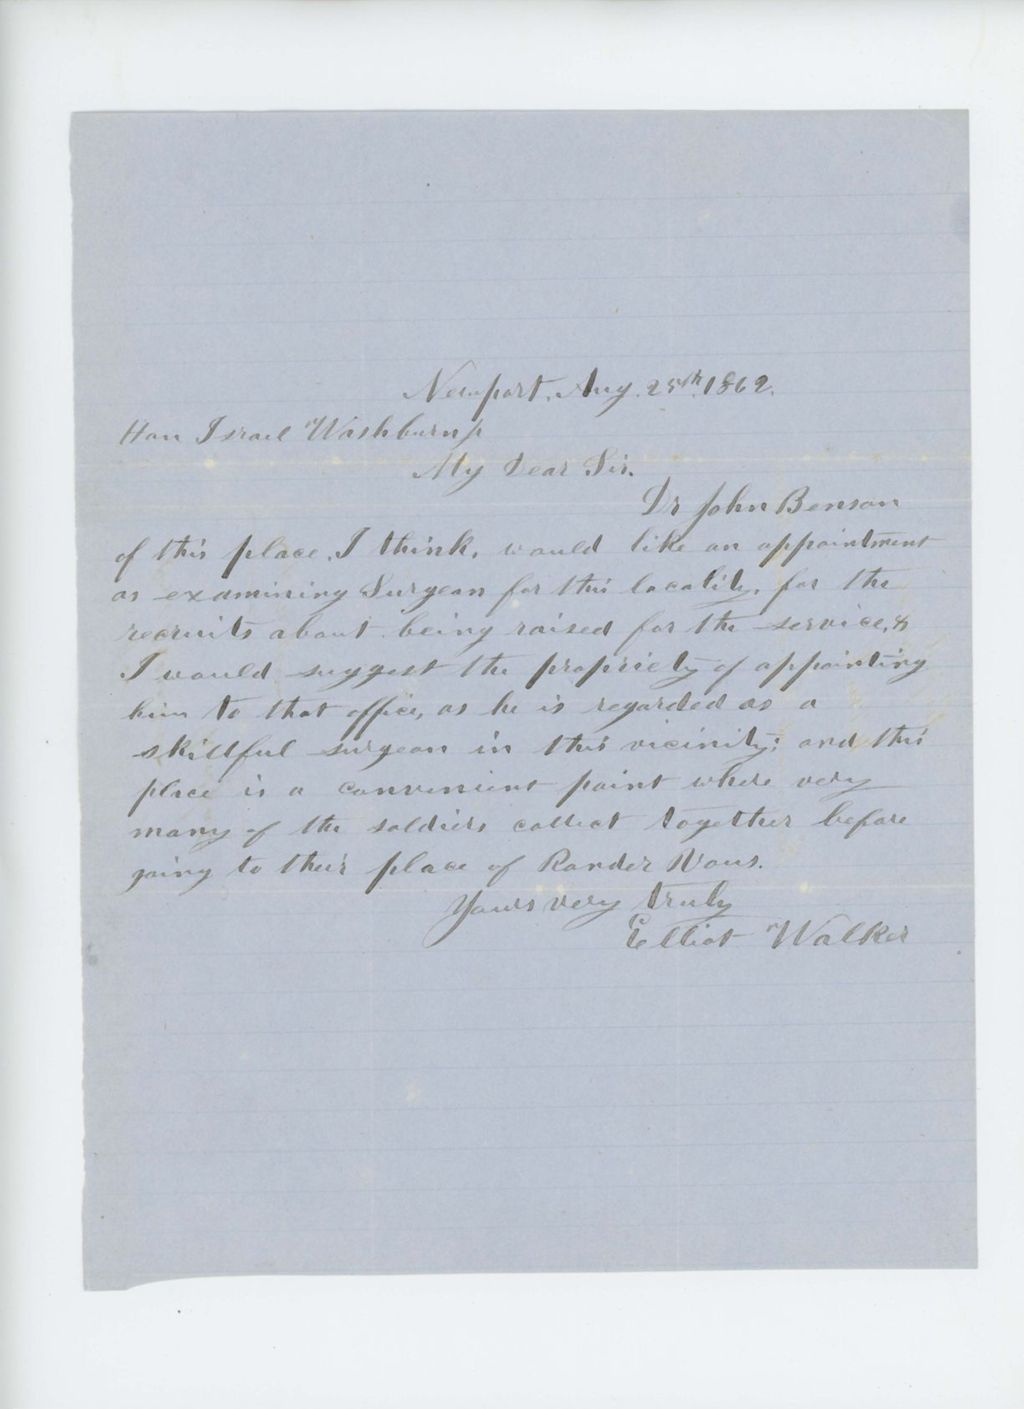 Newport, Aug. 25th, 1862.
Hon Israel Washburn jr
My Dear Sir.
Dr John Benson
of this place, I think, would like an appointment
as examining Surgeon for this locality, for the
recruits about being raised for the service, &
I would suggest the propriety of appointing
him to that office, as he is regarded as a
skillful surgeon in this vicinity; and this
place is a convenient point where very
many of the soldiers collect together before
going to their place of Rander Vous.
Yours very truly
Elliot Walker